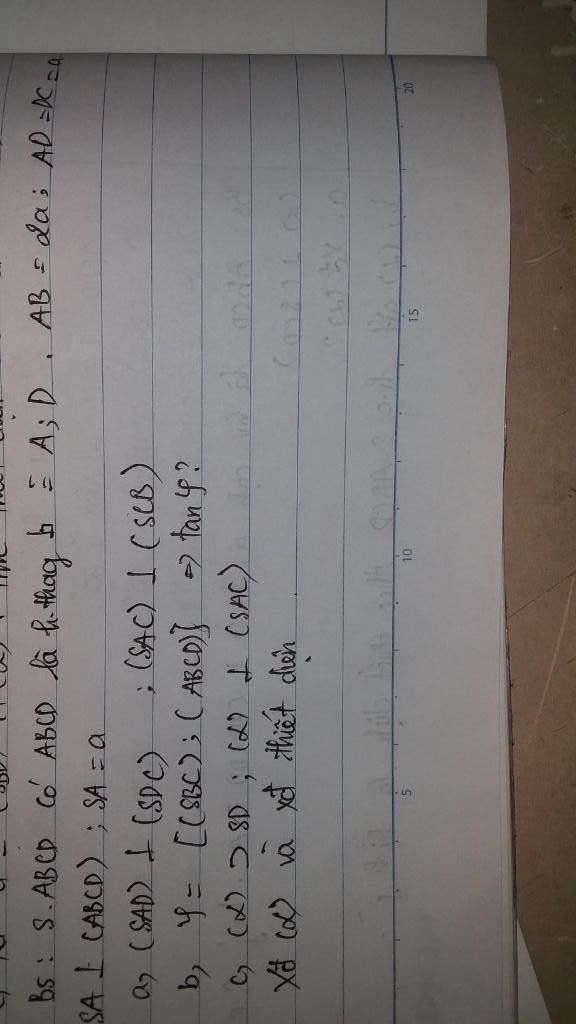 Bs : S.ABCD có ABCD là h.thag ⊥ = A ; D . AB = 2a ; AD = DC = a
SA ⊥ (ABCD) ; SA = a
a, (SAD) ⊥ (SDC) ; (SAC) ⊥ (SCB)
b, φ = [(SBC) ; (ABCD)] => tan φ ?
c, (α) ⊃ SD ; (α) ⊥ (SAC)
Xđ (α) và xđ thiết diện
5
10
15
20